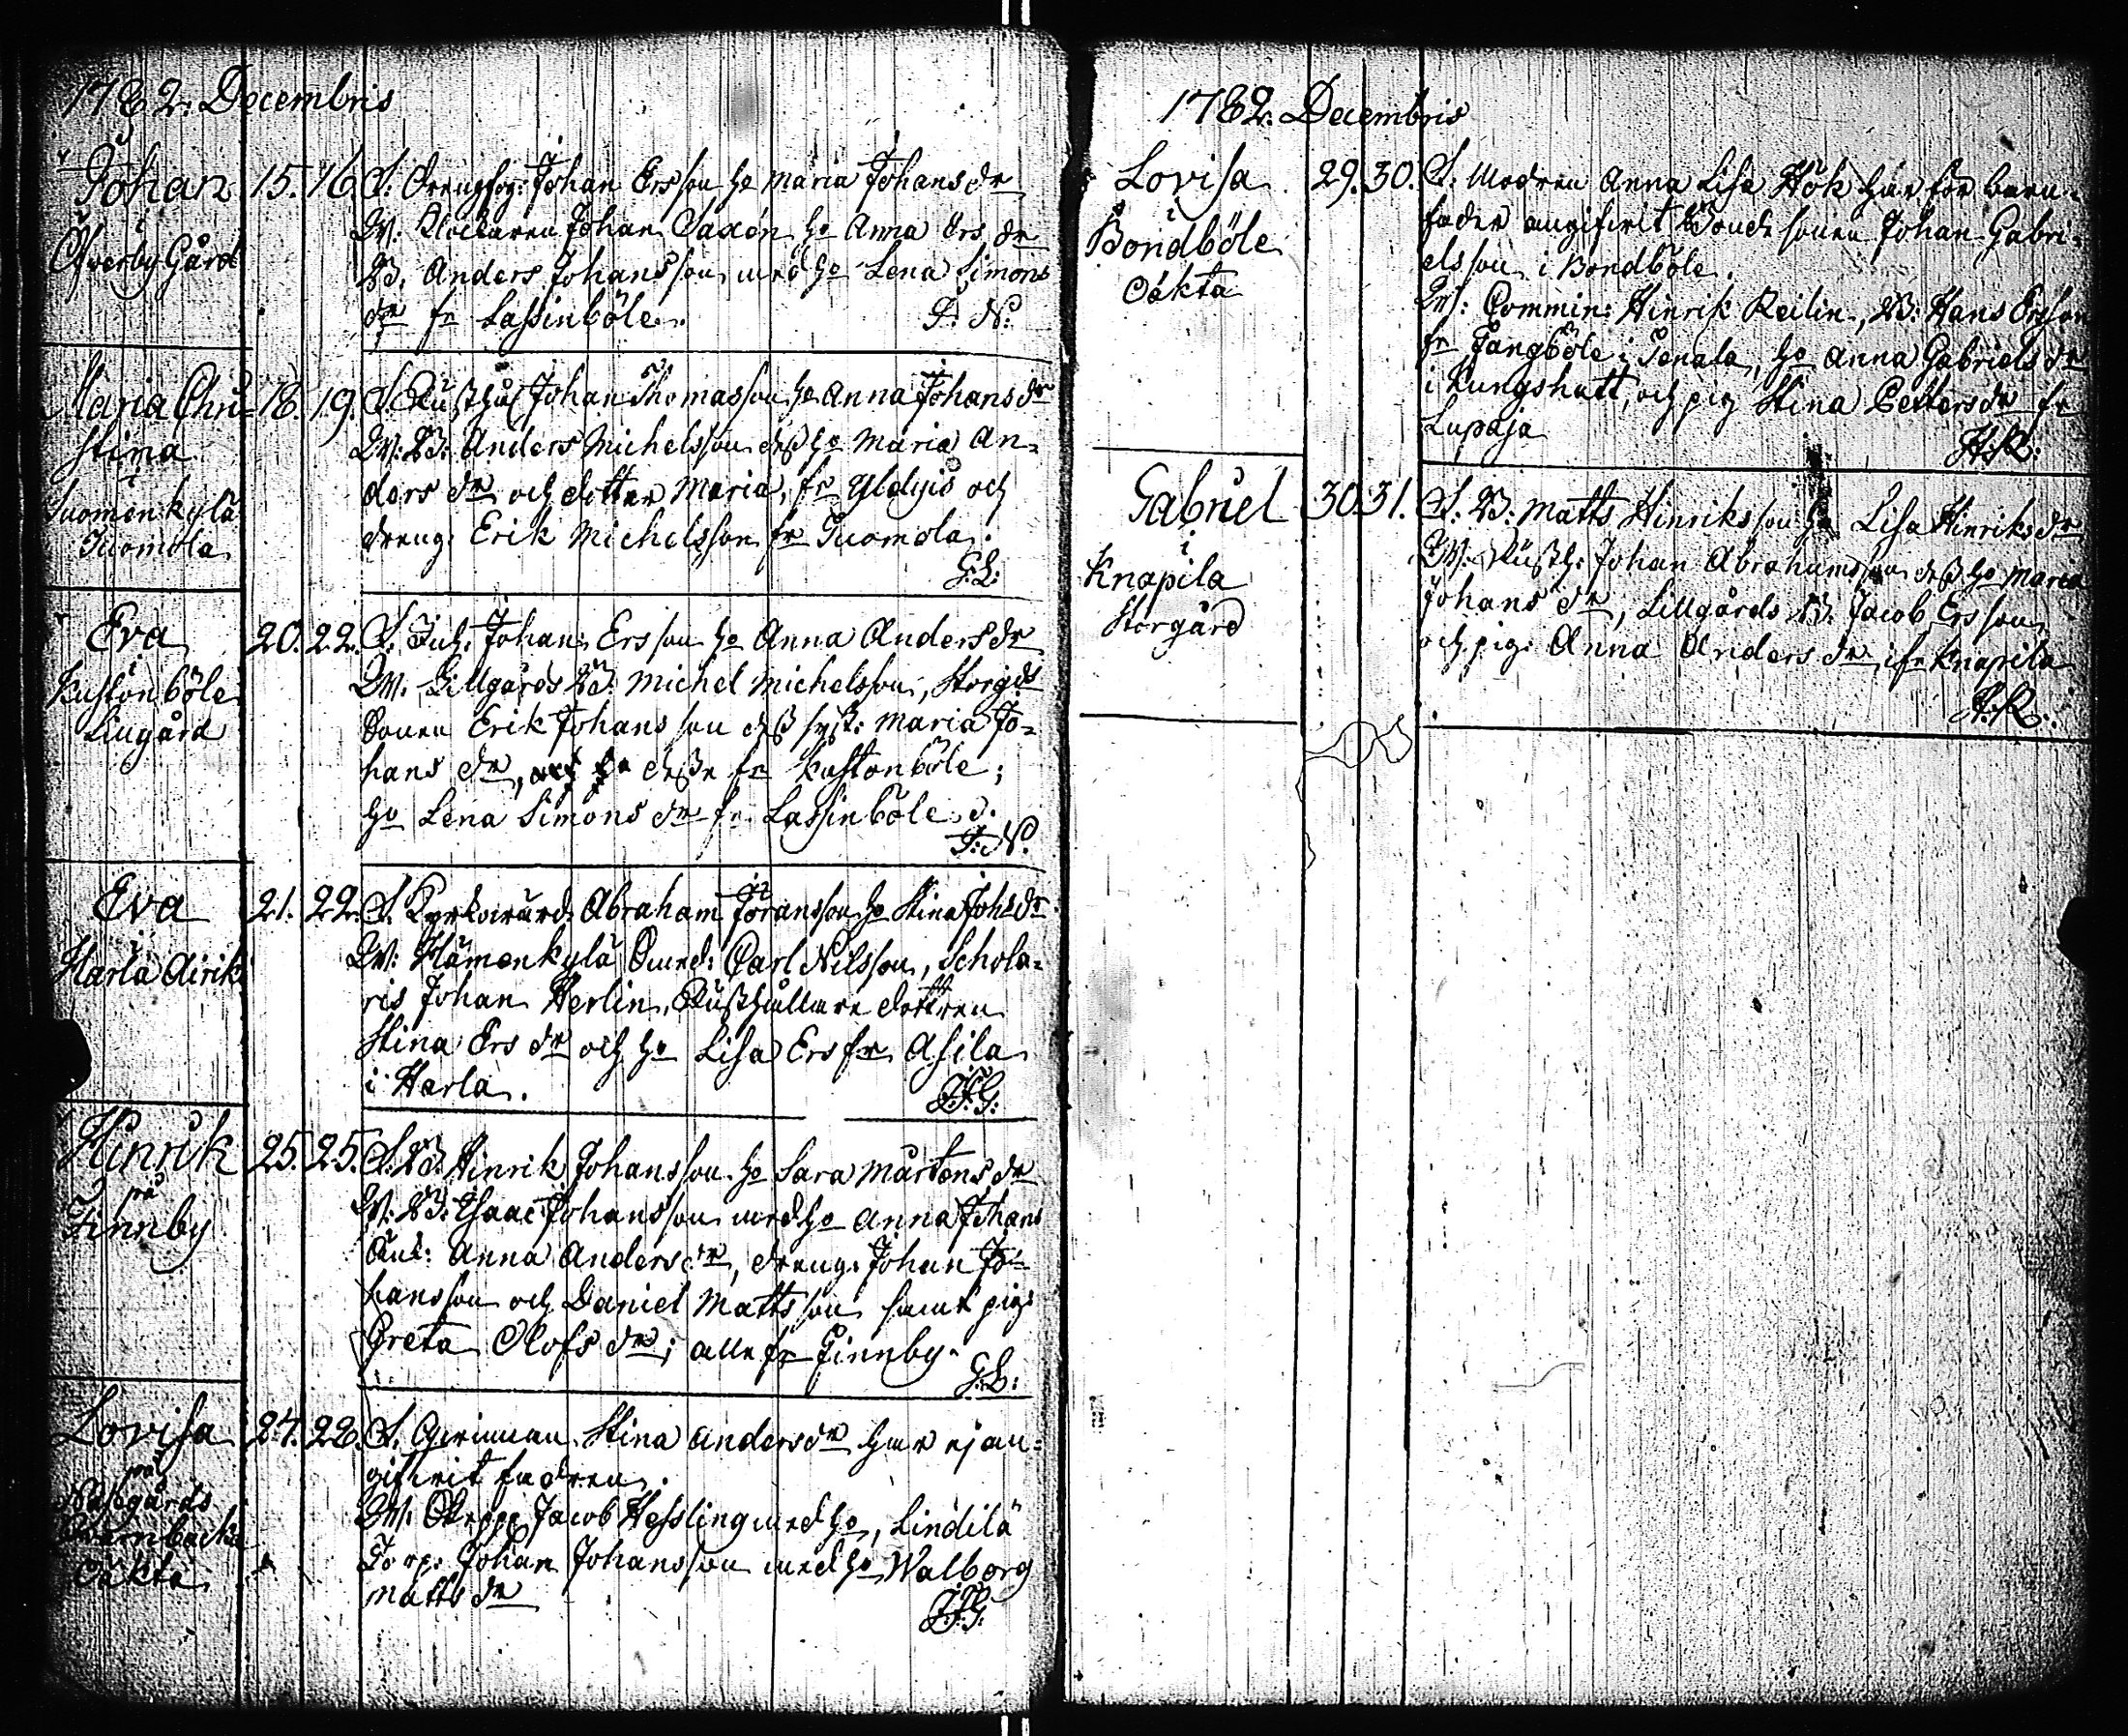 1782. Decembris
Johan
i
Öfverby Gård
15. 16. F. Drengfog: Johan Ersson ho Maria Johans dr
W. Klockaren Johan Saxén ho Anna Ers dr
B. Anders Johansson med ho Lena Simons
dr fr Lassinböle.
Maria Chri-
stina
i
Suomenkylä
Tuomola
18. 19. F. Rusthål Johan Thomasson ho Anna Johans dr
W. B. Anders Michelsson dess ho Maria An-
ders dr och dotter Maria, fr och
dreng: Erik Michelsson fr Tuomola.
G: L:
Eva
i
Kustonböle
Lillgård
20. 22. F. Inh: Johan Ersson ho Anna Anders dr
W. Lillgårds B. Michel Michelsson, Storgds
Sonen Erik Johansson dess syst: Maria Jo-
hans dr, desse fr Kustonböle;
ho Lena Simons dr fr Lassinböle.
Eva
Harla Airik
21. 22. F. Kyrkovärd: Abraham Jöransson ho Stina Johs dr
W: Hämenkylä Carl Nilsson, Schola-
ris Johan Herlin, Rusthållare dottren
Stina Ers dr och ho Lisa Ers fr Asila
i Harla.
J: G:
Hinrik
på
Finnby
25. 25. F. B. Hinrik Johansson ho Sara Mårtens dr
W. B. Isaac Johansson med ho Anna Johans
Enk: Anna Anders dr, dreng: Johan Jo-
hansson och Daniel Mattsson samt pig:
Greta Olofs dr; alle fr Finnby.
G: L:
Lovisa
på
Näsegårds
Qvarnbacke
Oäkta
27. 28. F. Qvinnan Stina Anders dr har ej an-
gifvit fadren.
W. Skepp: Jacob Hessling med ho, Lindilä
Torp: Johan Johansson med ho Walborg
Matts dr
J: G:
1782. Decembris
Lovisa
i
Bondböle
Oäkta
29. 30. F. Modren Anna Lisa Hök har för barn-
fader angifvit Bonde sonen Johan Gabri-
elsson i Bondböle.
W: Commin: Hinrik Reilin, B: Hans Ersson
fr Fangböle i Tenala, ho Anna Gabriels dr
i Kungshatt, och pig Stina Petters dr fr
Lupaja
H: R:
Gabriel
i
Knapila
Storgård
30. 31. F. B. Matts Hinriksson ho Lisa Hinriks dr
W. Rusth: Johan Abrahamsson dess ho Maria
Johans dr, Lillgårds B. Jacob Ersson
och pig: Anna Anders dr ifr Knapila
H: R: